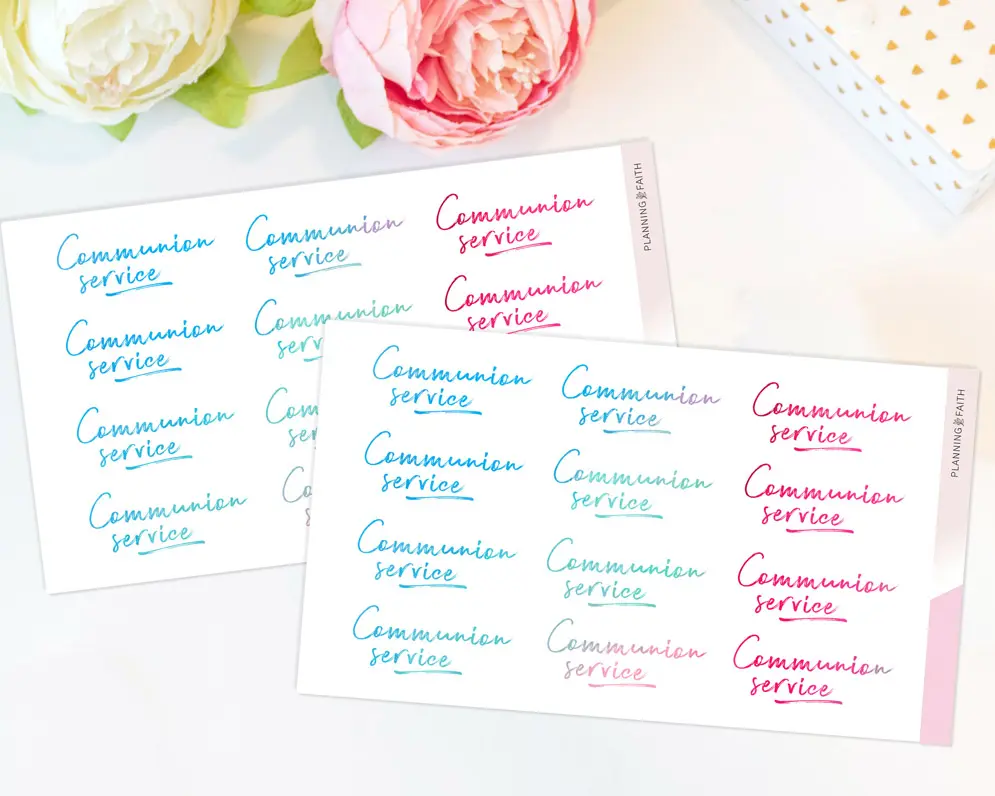 Communion
service
Communion
service
Communion
service
Communion
service
Communion
Communion
service
Communion
service
Communion
service
PLANNING FAITH
Communion
service
Communion
service
Communion
service
Communion
service
Communion
service
Communion
service
Communion
service
Communion
service
Communion
service
Communion
service
Communion
service
Communion
service
PLANNING FAITH